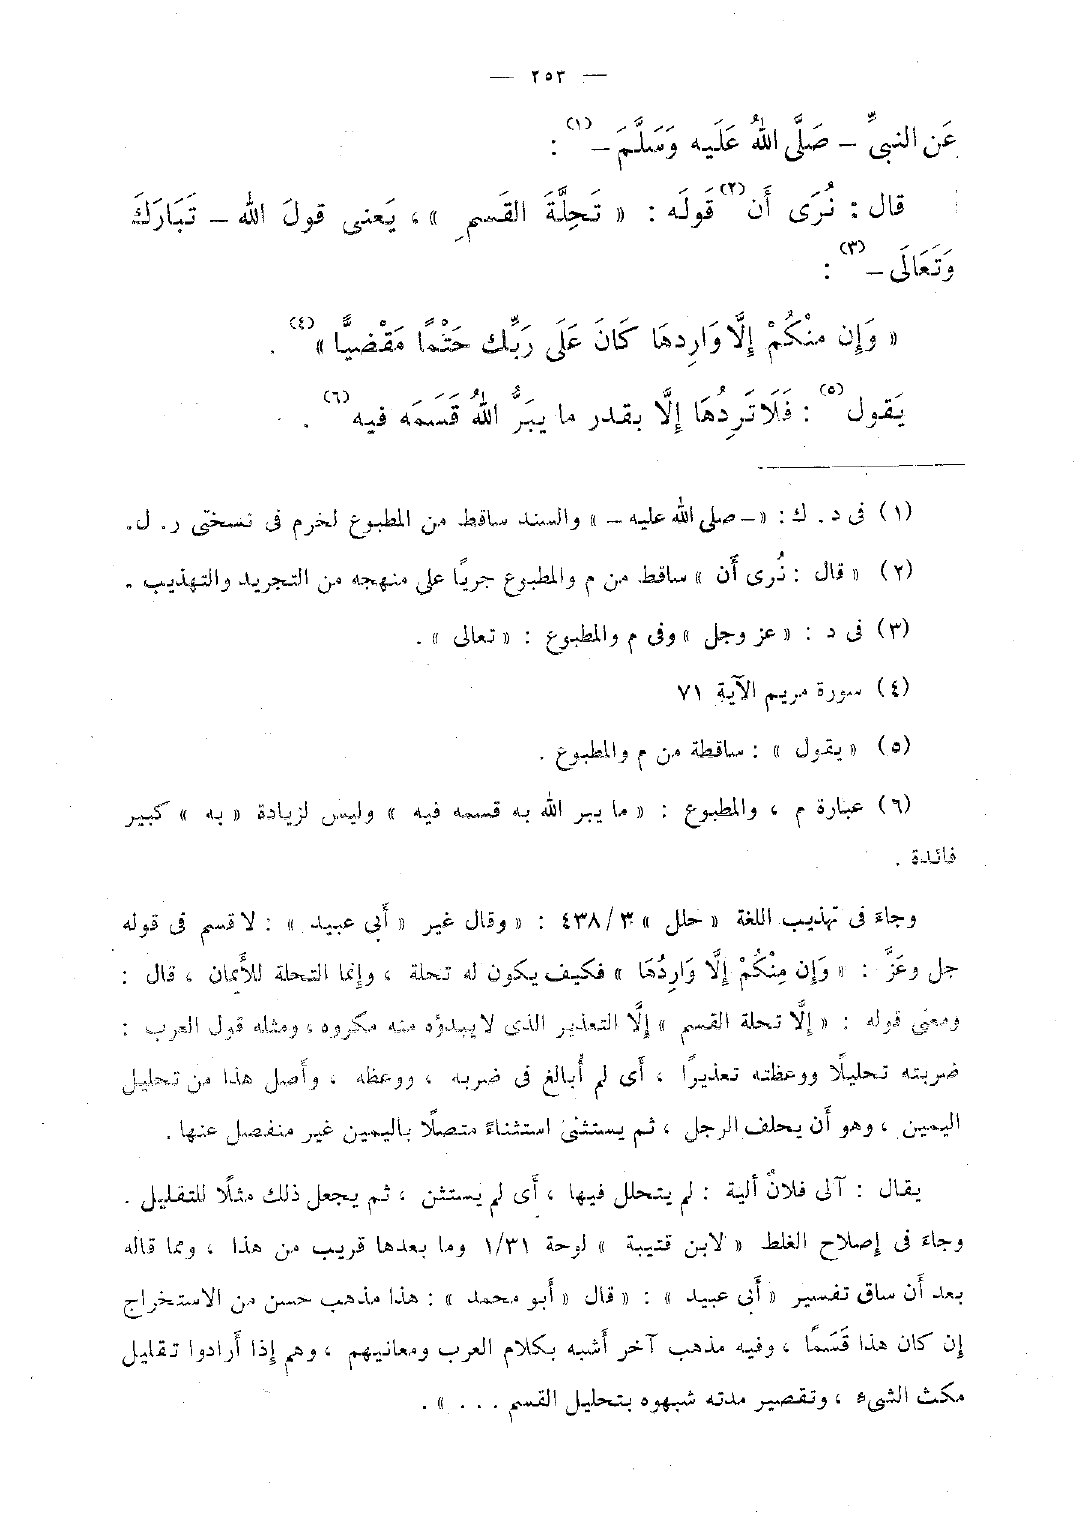 — ٢٥٣ —
عَن النبىِّ – صَلَّى اللهُ عَلَيه وَسَلَّمَ –(١) :
قال : نُرَى أَن(٢) قَولَه : « تَحِلَّةَ القَسمِ » ، يَعنى قولَ الله – تَبَارَكَ
وَتَعَالَى –(٣) :
« وَإِن منْكُمْ إِلَّا وَارِدهَا كَانَ عَلَى رَبِّك حَتْمًا مَقْضيًّا »(٤) .
يَقول(٥) : فَلَا تَرِدُهَا إِلَّا بقدر ما يبَرُّ اللهُ قَسَمَه فيه(٦) .
(١) فى د . ك : « – صلى الله عليه – » والسند ساقط من المطبوع لخرم فى نسختى ر . ل .
(٢) « قال : نُرى أَن » ساقط من م والمطبوع جريًا على منهجه من التجريد والتهذيب .
(٣) فى د : « عز وجل » وفى م والمطبوع : « تعالى » .
(٤) سورة مريم الآية ٧١
(٥) « يقول » : ساقطة من م والمطبوع .
(٦) عبارة م ، والمطبوع : « ما يبر الله به قسمه فيه » وليس لزيادة « به » كبير
فائدة .
وجاءَ فى تهذيب اللغة « حلل » ٤٣٨/٣ : « وقال غير « أَبى عبيد » : لا قسم فى قوله
جل وعَزَّ : « وَإِن مِنْكُمْ إِلَّا وَارِدُهَا » فكيف يكون له تحلة ، وإنما التحلة للأَيمان ، قال :
ومعنى قوله : « إِلَّا تحلة القسم » إِلَّا التعذير الذى لا يبدؤه منه مكروه ، ومثله قول العرب :
ضربته تحليلًا ووعظته تعذيرًا ، أَى لم أُبالغ فى ضربه ، ووعظه ، وأَصل هذا من تحليل
اليمين ، وهو أَن يحلف الرجل ، ثم يستثنى استثناءً متصلًا باليمين غير منفصل عنها .
يقال : آلى فلانٌ ألية : لم يتحلل فيها ، أَى لم يستثن ، ثم يجعل ذلك مثلًا للتقليل .
وجاءَ فى إِصلاح الغلط « لابن قتيبة » لوحة ١/٣١ وما بعدها قريب من هذا ، ومما قاله
بعد أَن ساق تفسير « أَبى عبيد » : « قال « أَبو محمد » : هذا مذهب حسن من الاستخراج
إِن كان هذا قَسَمًا ، وفيه مذهب آخر أَشبه بكلام العرب ومعانيهم ، وهم إِذا أَرادوا تقليل
مكث الشىءِ ، وتقصير مدته شبهوه بتحليل القسم . . . » .